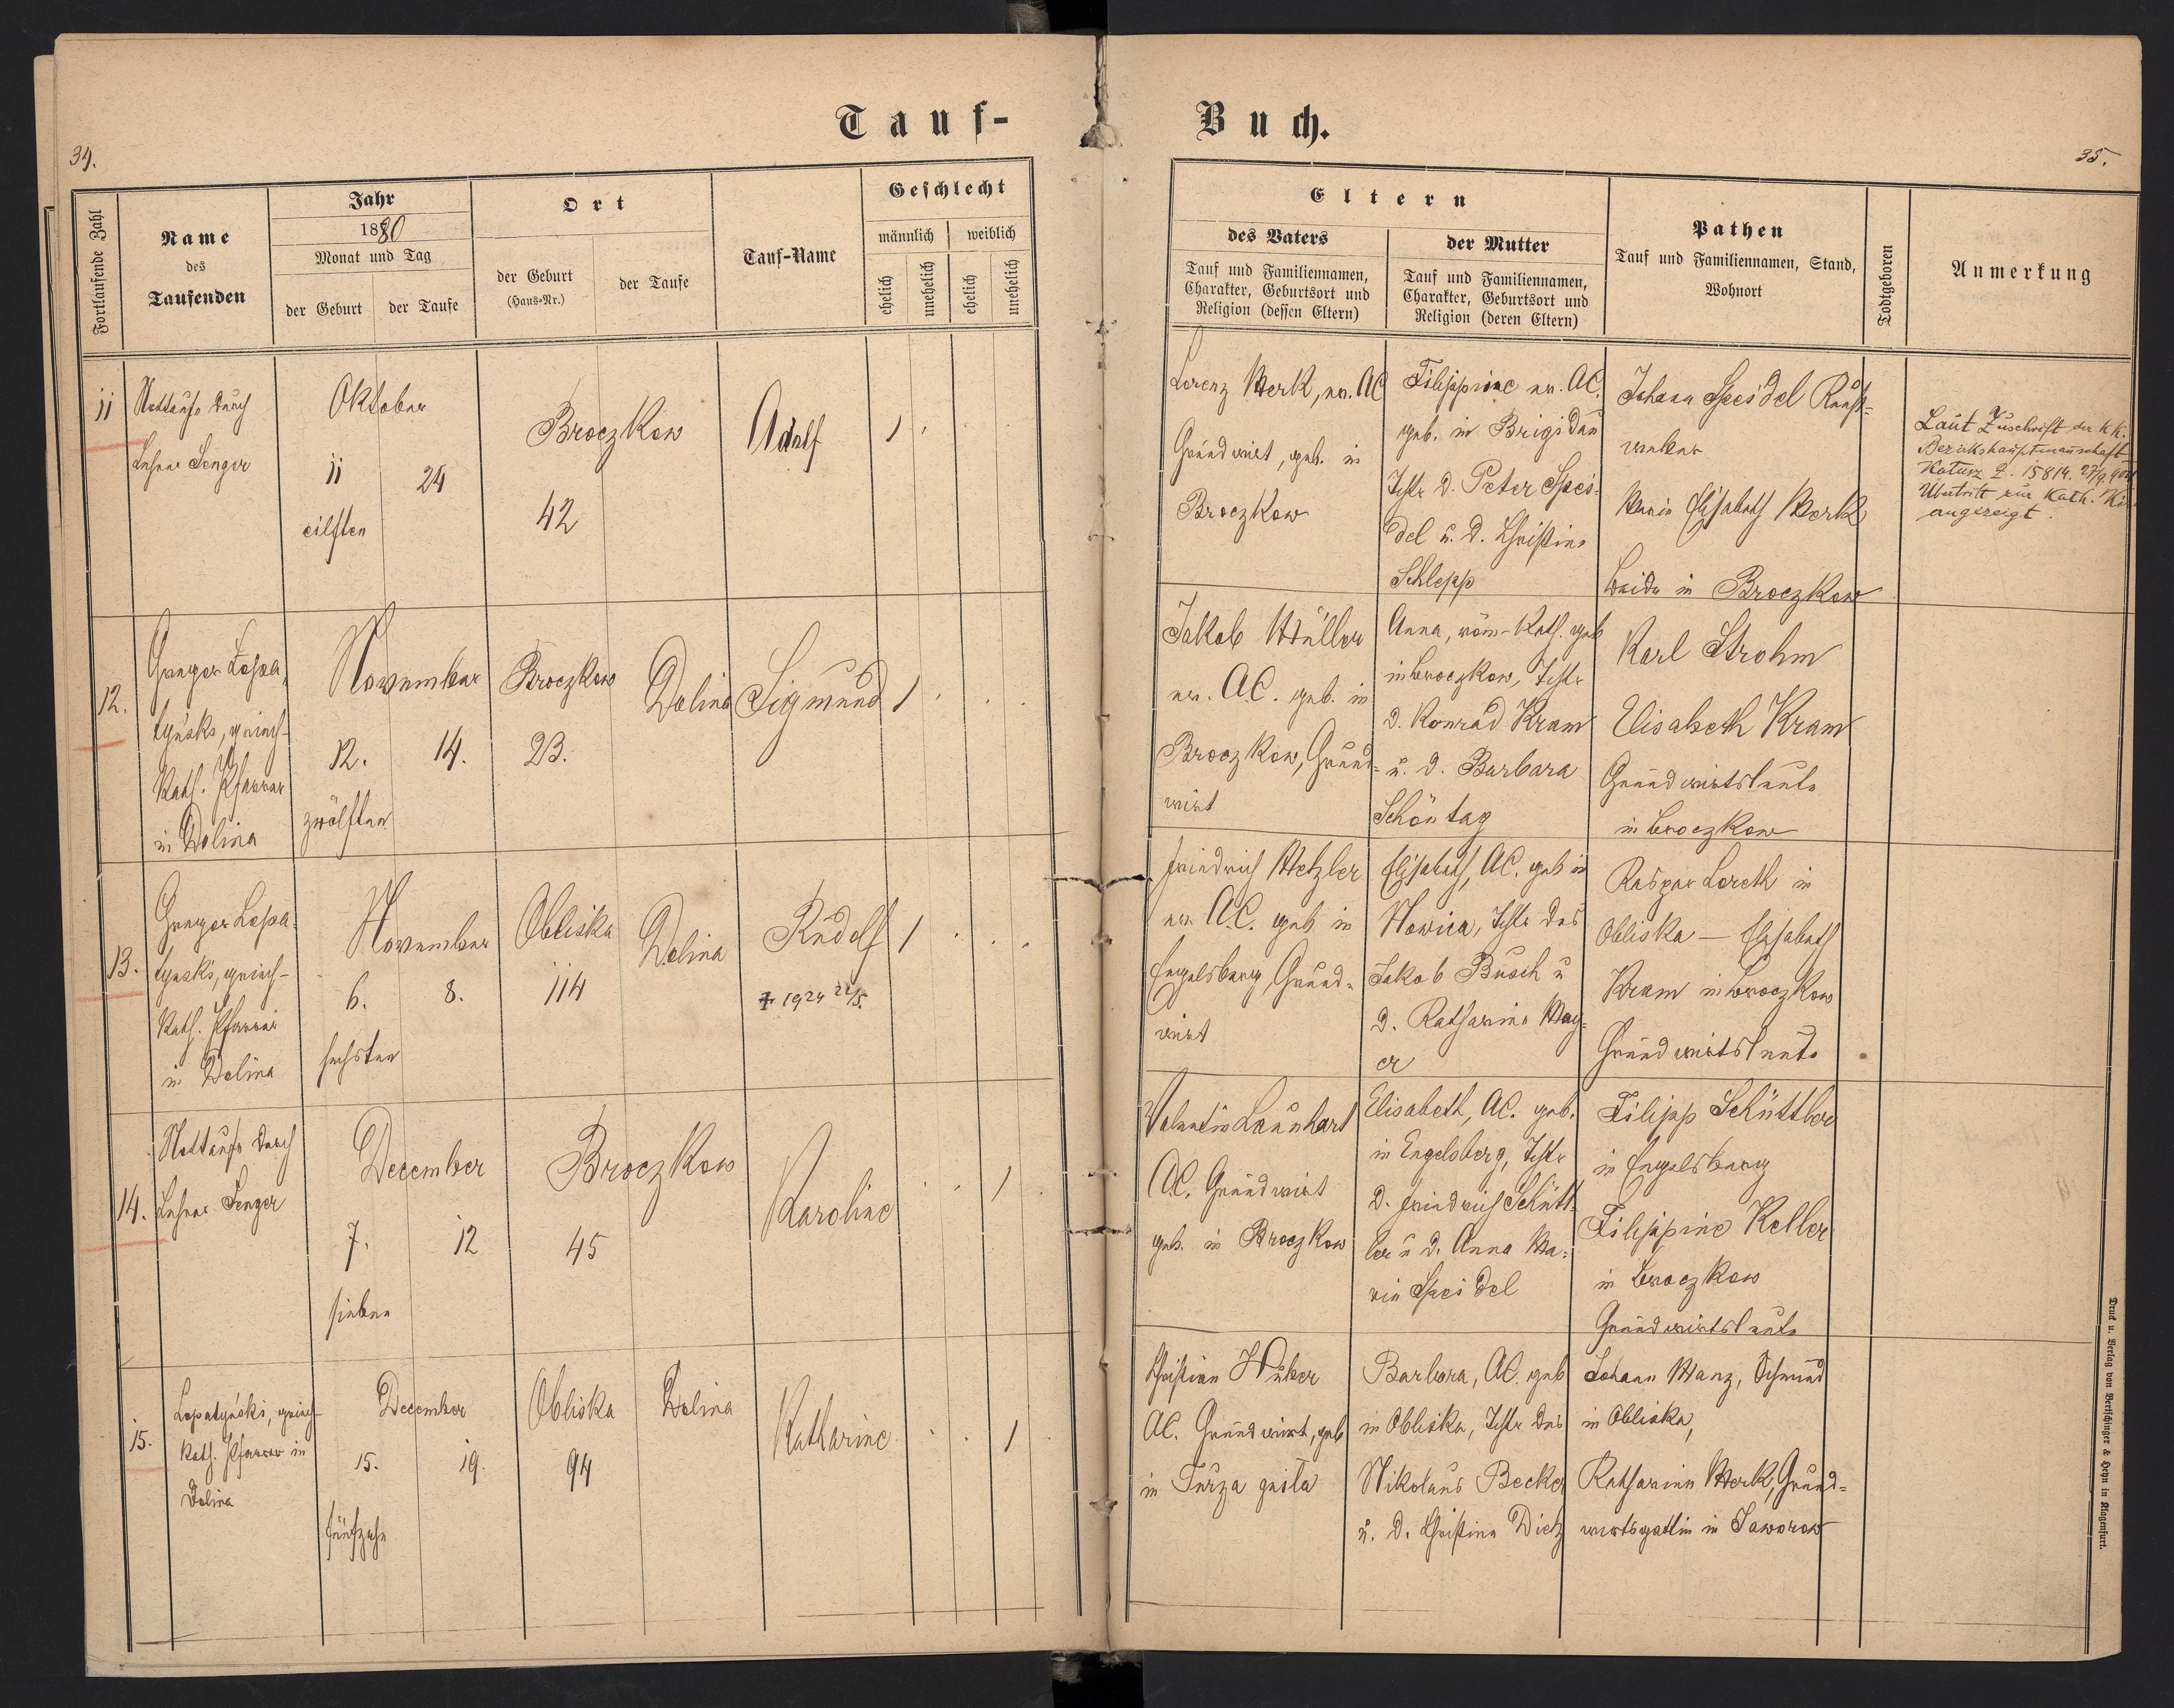 Tauf-
Buch.
34.
35.
Fortlaufende Zahl
Name
des
Taufenden
Jahr
1880
Monat und Tag
der Geburt
der Taufe
Ort
der Geburt
(Haus-Nr.)
der Taufe
Tauf-Name
Geschlecht
männlich
weiblich
ehelich
unehelich
ehelich
unehelich
Eltern
des Vaters
Tauf und Familiennamen,
Charakter, Geburtsort und
Religion (dessen Eltern)
der Mutter
Tauf und Familiennamen,
Charakter, Geburtsort und
Religion (deren Eltern)
Pathen
Tauf und Familiennamen, Stand,
Wohnort
Todtgeboren
Anmerkung
11
Nottaufe durch
Lehrer Senger
Oktober
11
24
eilften
Broczkow
42
Adolf
1
Lorenz Merk, ev. AC
Grundwirt, geb. in
Broczkow
Filippine ev. AC.
geb. in Brigidau
Tochter d. Peter Spei-
del u. d. Christina
Schlepp
Johann Speidel
Maria Elisabeth Merk
beide in Broczkow
Laut Zuschrift der k.k.
Bezirkshauptmannschaft
Z. 15814. 27/9
Übertritt zur Kath.
angezeigt.
12.
Gregor Lopa-
tyński, griech-
kath. Pfarrer
in Dolina
November
12.
14.
zwölften
Broczkow
23.
Dolina
Sigmund
1
Jakob Müller
ev. AC. geb. in
Broczkow, Grund-
wirt
Anna, röm-kath. geb
in Broczkow, Tochter
d. Konrad Kram
u. d. Barbara
Schöntag
Karl Strohm
Elisabeth Kram
Grundwirtsleute
in Broczkow
13.
Gregor Lopa-
tynski, griech-
kath. Pfarrer
in Dolina
November
6.
8.
sechsten
Obliska
114
Dolina
Rudolf
1924 22/5.
1
Friedrich Metzler
ev. AC. geb in
Engelsberg, Grund-
wirt
Elisabeth, AC. geb in
Nowica, Tochter des
Jakob Busch u
d. Katharina May-
er
Kaspar Loreth in
Obliska — Elisabeth
Kram in Broczkow
Grundwirtsleute
14.
Nottaufe durch
Lehrer Senger
December
7.
12
sieben
Broczkow
45
Karoline
1
Valentin Leunhart
AC. Grundwirt
geb. in Broczkow
Elisabeth, AC. geb.
in Engelsberg, Tochter
d. Friedrich Schütt-
ler u d. Anna Ma-
ria Speidel
Filipp Schüttler
in Engelsberg
Filippine Keller
in Broczkow
Grundwirtsleute
15.
Lopatyński, griech-
kath. Pfarrer in
Dolina
December
15.
19.
fünfzehn
Obliska
94
Dolina
Katharine
1
Christian Huber
AC. Grundwirt, geb
in Turza
Barbara, AC. geb
in Obliska, Tochter des
Nikolaus Becker
u. d. Christina Dietz
Johann Manz, Schmied
in Obliska,
Katharina Merk, Grund-
wirtsgattin in Jaworow
Druck u. Verlag von Bertschinger & Heyn in Klagenfurt.